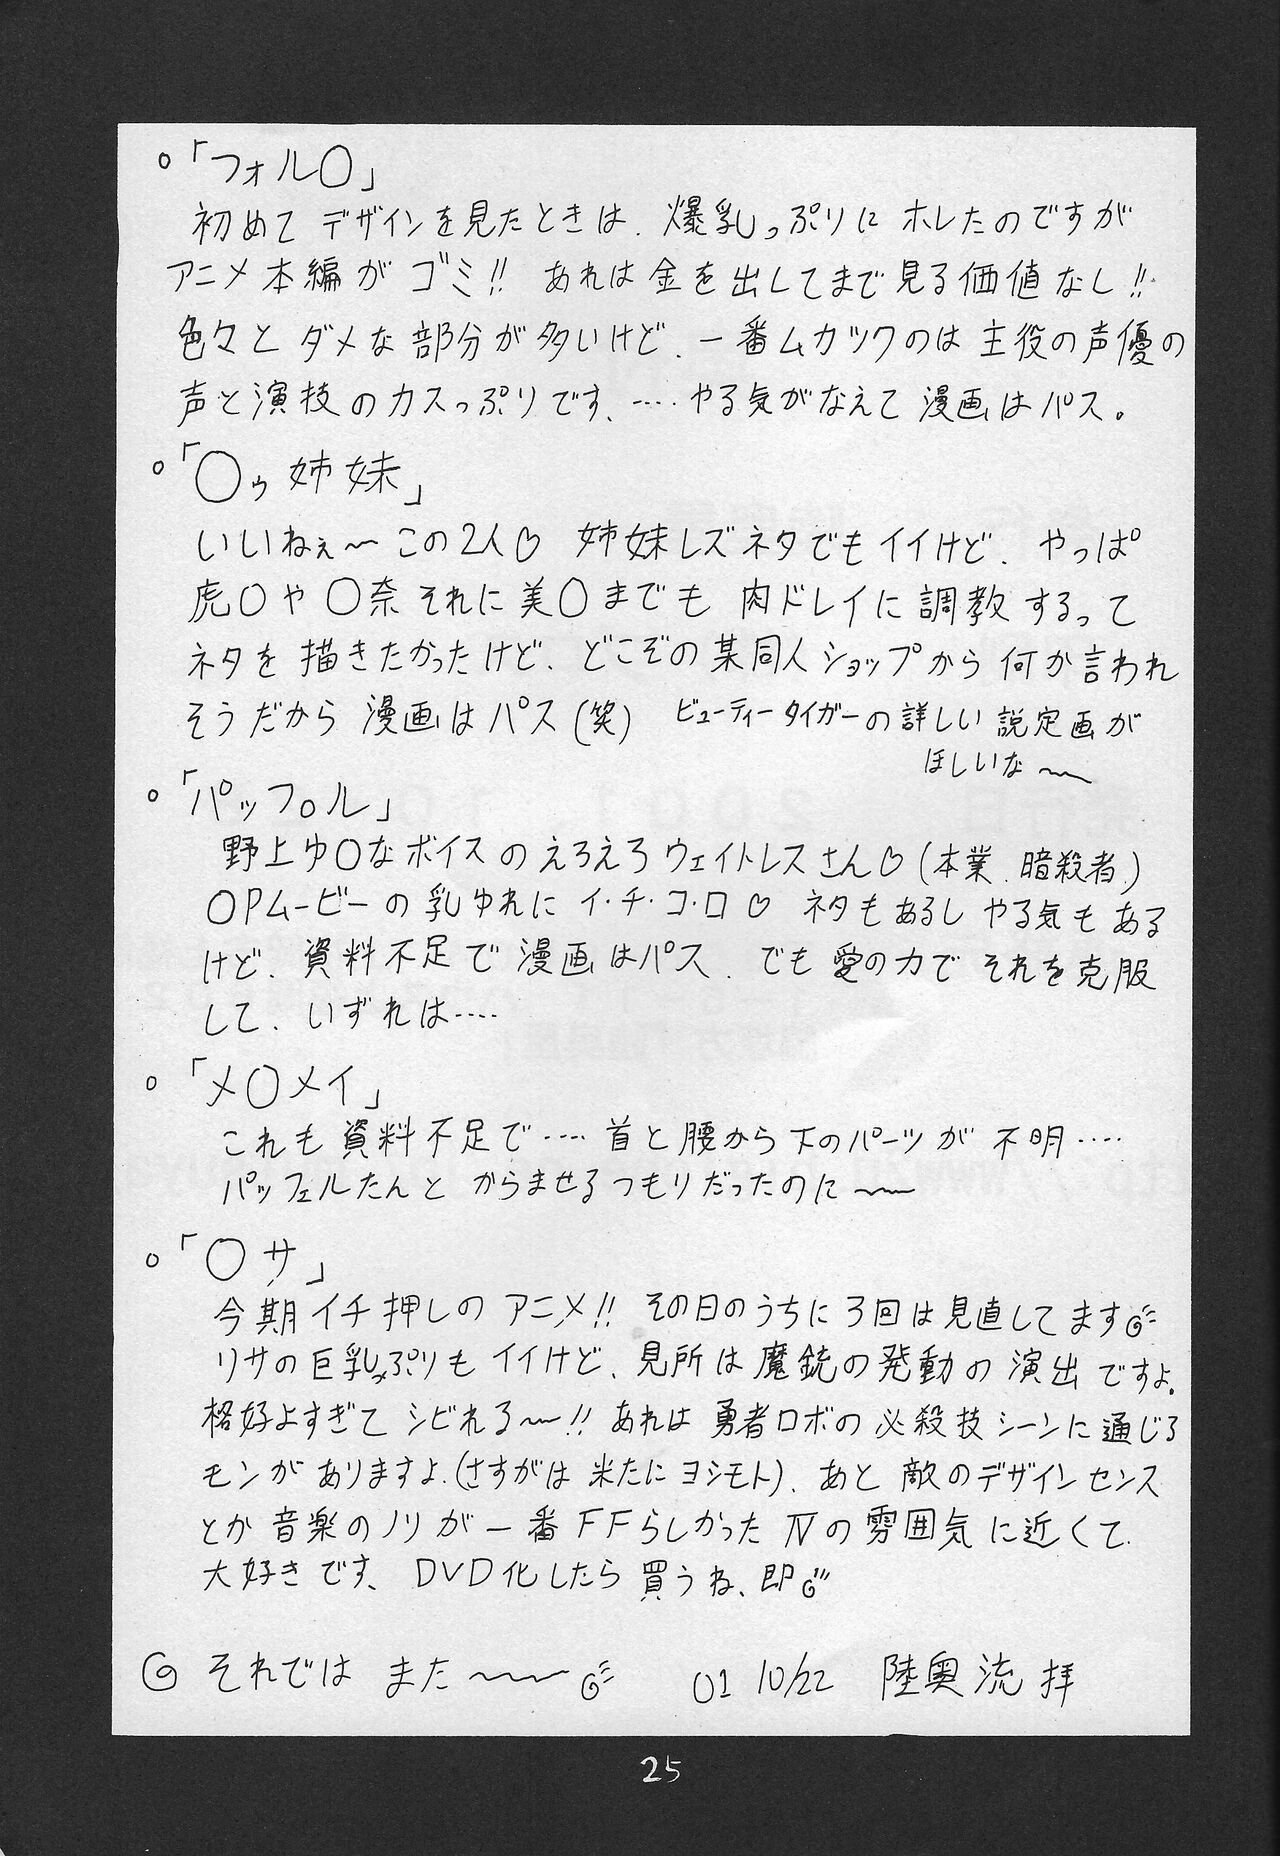 ○「フォル○」
初めて デザインを見たときは、爆乳っぷりに ホレたのですが
アニメ本編が ゴミ!! あれは金を出してまで見る価値なし!!
色々と ダメな部分が多いけど、一番ムカツクのは 主役の声優の
声と演技のカスっぷりです、‥‥ やる気がなえて 漫画はパス。
○「○ゥ姉妹」
いいねぇ〜 この2人♡ 姉妹レズネタでもイイけど、やっぱ
虎○や ○奈 それに美○までも 肉ドレイに調教するって
ネタを 描きたかったけど、どこぞの某同人ショップから 何か言われ
そうだから 漫画はパス(笑) ビューティータイガーの詳しい 設定画が
ほしいな〜
○「パッフ○ル」
野上ゆ○なボイスのえろえろウェイトレスさん♡(本業、暗殺者)
OPムービーの乳ゆれに イ・チ・コ・ロ♡ ネタもあるし やる気もある
けど、資料不足で 漫画はパス、でも 愛の力で それを克服
して、いずれは‥‥
○「メ○メイ」
これも 資料不足で‥‥ 首と腰から下のパーツが 不明‥‥
パッフェルたんと からませるつもりだったのに〜
○「○サ」
今期イチ押しの アニメ!! その日のうちに 3回は見直してます
リサの巨乳っぷりも イイけど、見所は 魔銃の発動の 演出ですよ。
格好よすぎて シビれる〜!! あれは 勇者ロボの 必殺技シーンに通じる
モンが ありますよ、(さすがは 米たにヨシモト)、あと 敵のデザインセンス
とか 音楽のノリが 一番FFらしかった Ⅳの雰囲気に近くて
大好きです、DVD化したら 買うね、即
それでは また〜 01 10/22 陸奥流 拝
25